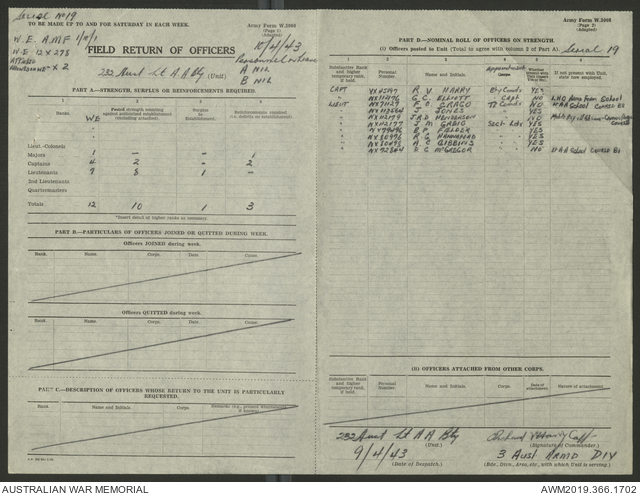 Serial No 19
TO BE MADE UP TO AND FOR SATURDAY IN EACH WEEK.
Army Form W.3008
(Page 1)
(Adapted)
W.E. A.M.F 1/8/1
W.E 12 x 278
ATTACHED
x 2
FIELD RETURN OF OFFICERS
10/4/43
A NIL
B NIL
232 Aust Lt A A Bty (Unit)
PART A—STRENGTH, SURPLUS OR REINFORCEMENTS REQUIRED.
1 2 3 4
Ranks. Posted strength counting against authorized establishment (excluding attached). Surplus to Establishment. Reinforcements required (i.e. deficits on establishment)
WE
Lieut.-Colonels
Majors 1 - - 1
Captains 4 2 - 2
Lieutenants 7 8 1 -
2nd Lieutenants
Quartermasters
Totals 12 10 1 3
*Insert detail of higher ranks as necessary.
PART B.—PARTICULARS OF OFFICERS JOINED OR QUITTED DURING WEEK.
Officers JOINED during week.
Rank. Name. Corps. Date. Cause.
Officers QUITTED during week.
Rank. Name. Corps. Date. Cause.
PART C.—DESCRIPTION OF OFFICERS WHOSE RETURN TO THE UNIT IS PARTICULARLY REQUESTED.
Rank. Name and Initials. Corps.
Army Form W.3008
(Page 2)
(Adapted)
PART D.—NOMINAL ROLL OF OFFICERS ON STRENGTH.
(i) Officers posted to Unit (Total to agree with column 2 of Part A). Serial 19
1 2 3 4 5 6
Substantive Rank and higher temporary rank if held. Personal Number. Name and Initials. Appointment Corps. If not present with Unit, state here reason.
CAPT R V HARRY Bty Comdr YES
" G C ELLIOTT Capt NO
LIEUT R O CRAGO NO HAA School Course
" J JONES YES
" J.A.D HENDERSON NO
" J M GREIG YES
" B P FIELDER YES
" R G HAMMOND YES
" A C GIBBINS YES
" D C McGREGOR NO HAA School Course
(ii) OFFICERS ATTACHED FROM OTHER CORPS.
Substantive Rank and higher temporary rank if held. Personal Number. Name and Initials. Corps. Date of attachment. Nature of attachment.
232 Aust Lt A A Bty
(Unit.)
Richard V Harry Capt
(Signature of Commander.)
9/4/43
(Date of Despatch.)
3 Aust ARMD DIV
(Bde., Divn., Area, etc., with which Unit is serving.)
AUSTRALIAN WAR MEMORIAL
AWM2019.366.1702